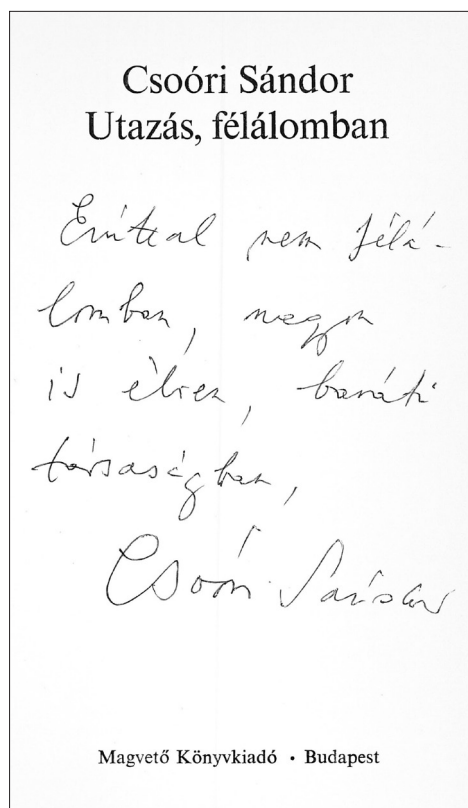 Csoóri Sándor
Utazás, félálomban
Ezúttal nem félá-
lomban, nagyon
is ébren, baráti
társaságban,
Csoóri Sándor
Magvető Könyvkiadó • Budapest